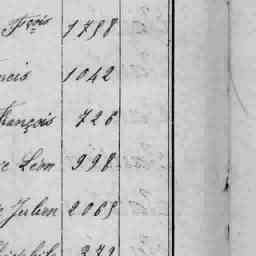 Fçois 1798
ncis 1042
François 726
e Léon 998
Julien 2065